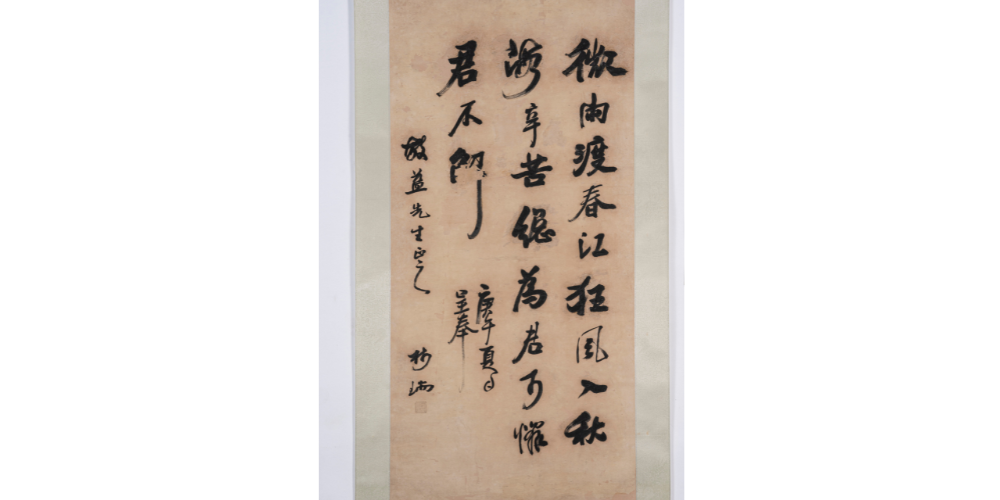 微雨渡春江狂風入秋
海辛苦總為君可憐
君不解
庚午夏日
呈奉
益先生正之